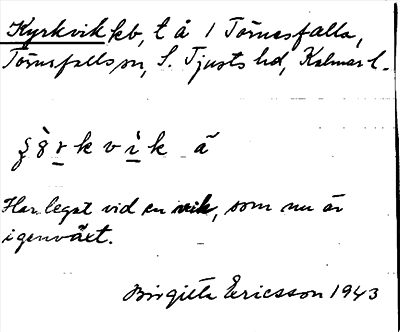 Kyrkvik kb, t å 1 Törnesfalla,
Törnsfalls sn, S. Tjusts hd, Kalmar l.
k v i k ã
Har legat vid en vik, som nu är
igenväxt.
Birgitta Ericsson 1943